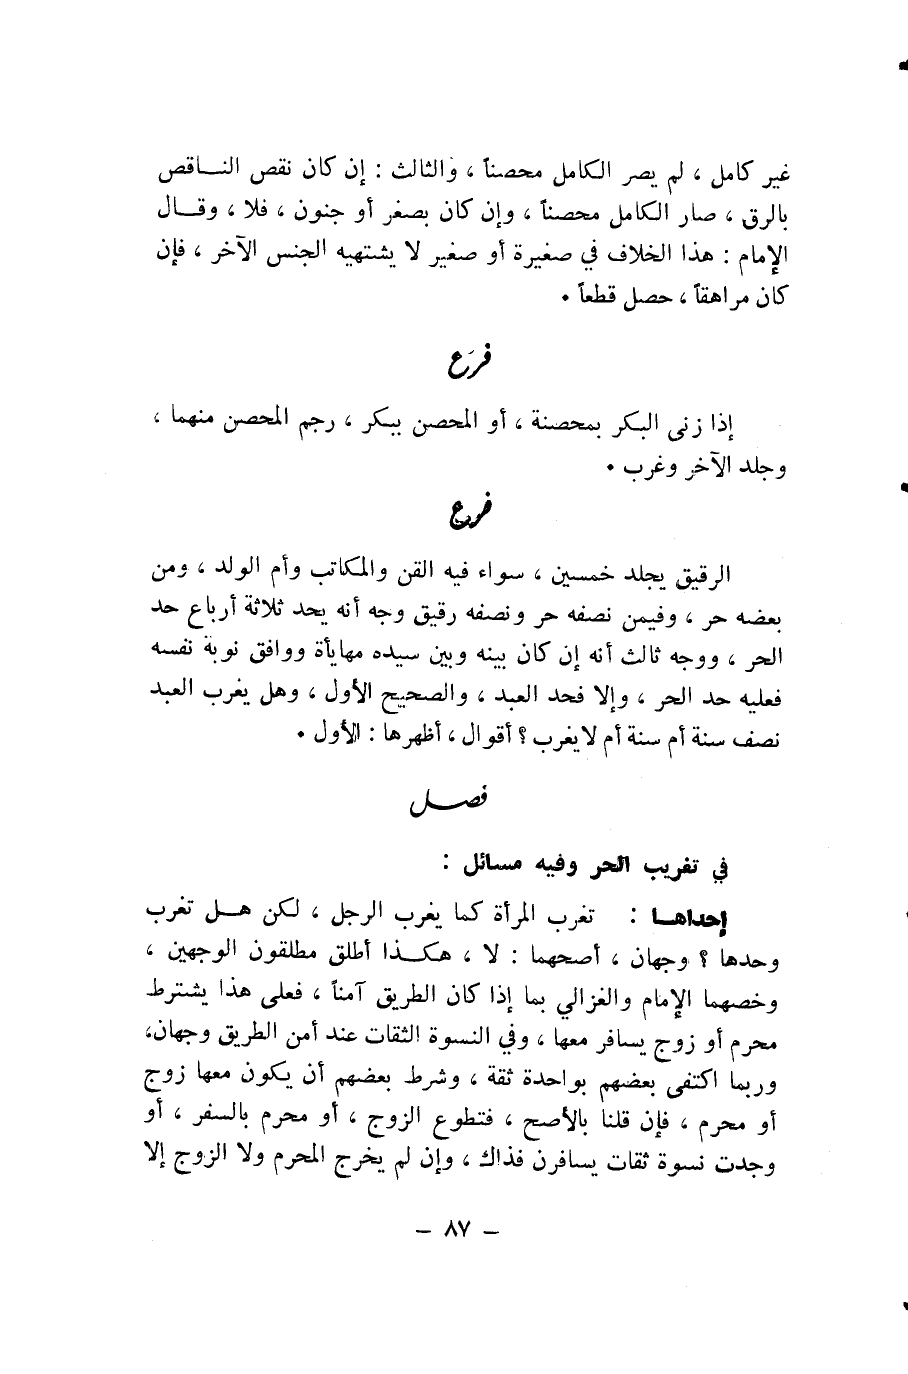 غير كامل ، لم يصر الكامل محصناً ، والثالث : إن كان نقص النـــاقص
بالرق ، صار الكامل محصناً ، وإن كان بصغر أو جنون ، فلا ، وقـــال
الإمام : هذا الخلاف في صغيرة أو صغير لا يشتهيه الجنس الآخر ، فإن
كان مراهقاً ، حصل قطعاً .
فرع
إذا زنى البكر بمحصنة ، أو المحصن ببكر ، رجم المحصن منهما ،
وجلد الآخر وغرب .
فرع
الرقيق يجلد خمسين ، سواء فيه القن والمكاتب وأم الولد ، ومن
بعضه حر ، وفيمن نصفه حر ونصفه رقيق وجه أنه يحد ثلاثة أرباع حد
الحر ، ووجه ثالث أنه إن كان بينه وبين سيده مهايأة ووافق نوبة نفسه
فعليه حد الحر ، وإلا فحد العبد ، والصحيح الأول ، وهل يغرب العبد
نصف سنة أم سنة أم لا يغرب ؟ أقوال ، أظهرها : الأول .
فصـــل
في تغريب الحر وفيه مسائل :
إحداهـا : تغرب المرأة كما يغرب الرجل ، لكن هـــل تغرب
وحدها ؟ وجهان ، أصحهما : لا ، هكـــذا أطلق مطلقون الوجهين ،
وخصهما الإمام والغزالي بما إذا كان الطريق آمناً ، فعلى هذا يشترط
محرم أو زوج يسافر معها ، وفي النسوة الثقات عند أمن الطريق وجهان،
وربما اكتفى بعضهم بواحدة ثقة ، وشرط بعضهم أن يكون معها زوج
أو محرم ، فإن قلنا بالأصح ، فتطوع الزوج ، أو محرم بالسفر ، أو
وجدت نسوة ثقات يسافرن فذاك ، وإن لم يخرج المحرم ولا الزوج إلا
– ٨٧ –